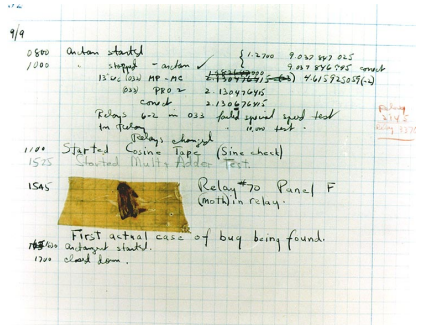 9/9
0800 Antan started
1000 " stopped - antan ✓ { 1.2700 9.037 847 025
9.037 846 995 correct
13"uc (032) MP - MC 4.615925059(-2)
(033) PRO 2 2.130476415
correct 2.130676415
Relays 6-2 in 033 failed special speed test
in Relay " 10,000 test.
Relays changed
Relay
2145
Relay 3370
1100 Started Cosine Tape (Sine check)
1525 Started Mult + Adder Test.
1545 Relay #70 Panel F
(moth) in relay.
First actual case of bug being found.
1630 antangent started.
1700 closed down.